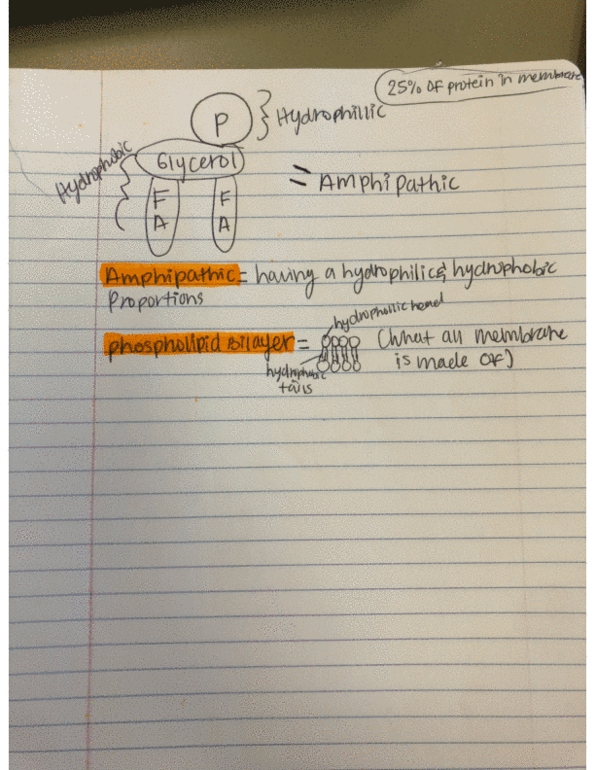 25% of protein in membrane
P
Hydrophillic
Hydrophobic
Glycerol
F F
A A
= Amphipathic
Amphipathic = having a hydrophilic & hydrophobic
Proportions
hydrophollic head
phospholipid Bilayer = (What all membrane
is made of)
hydrophobic
tails